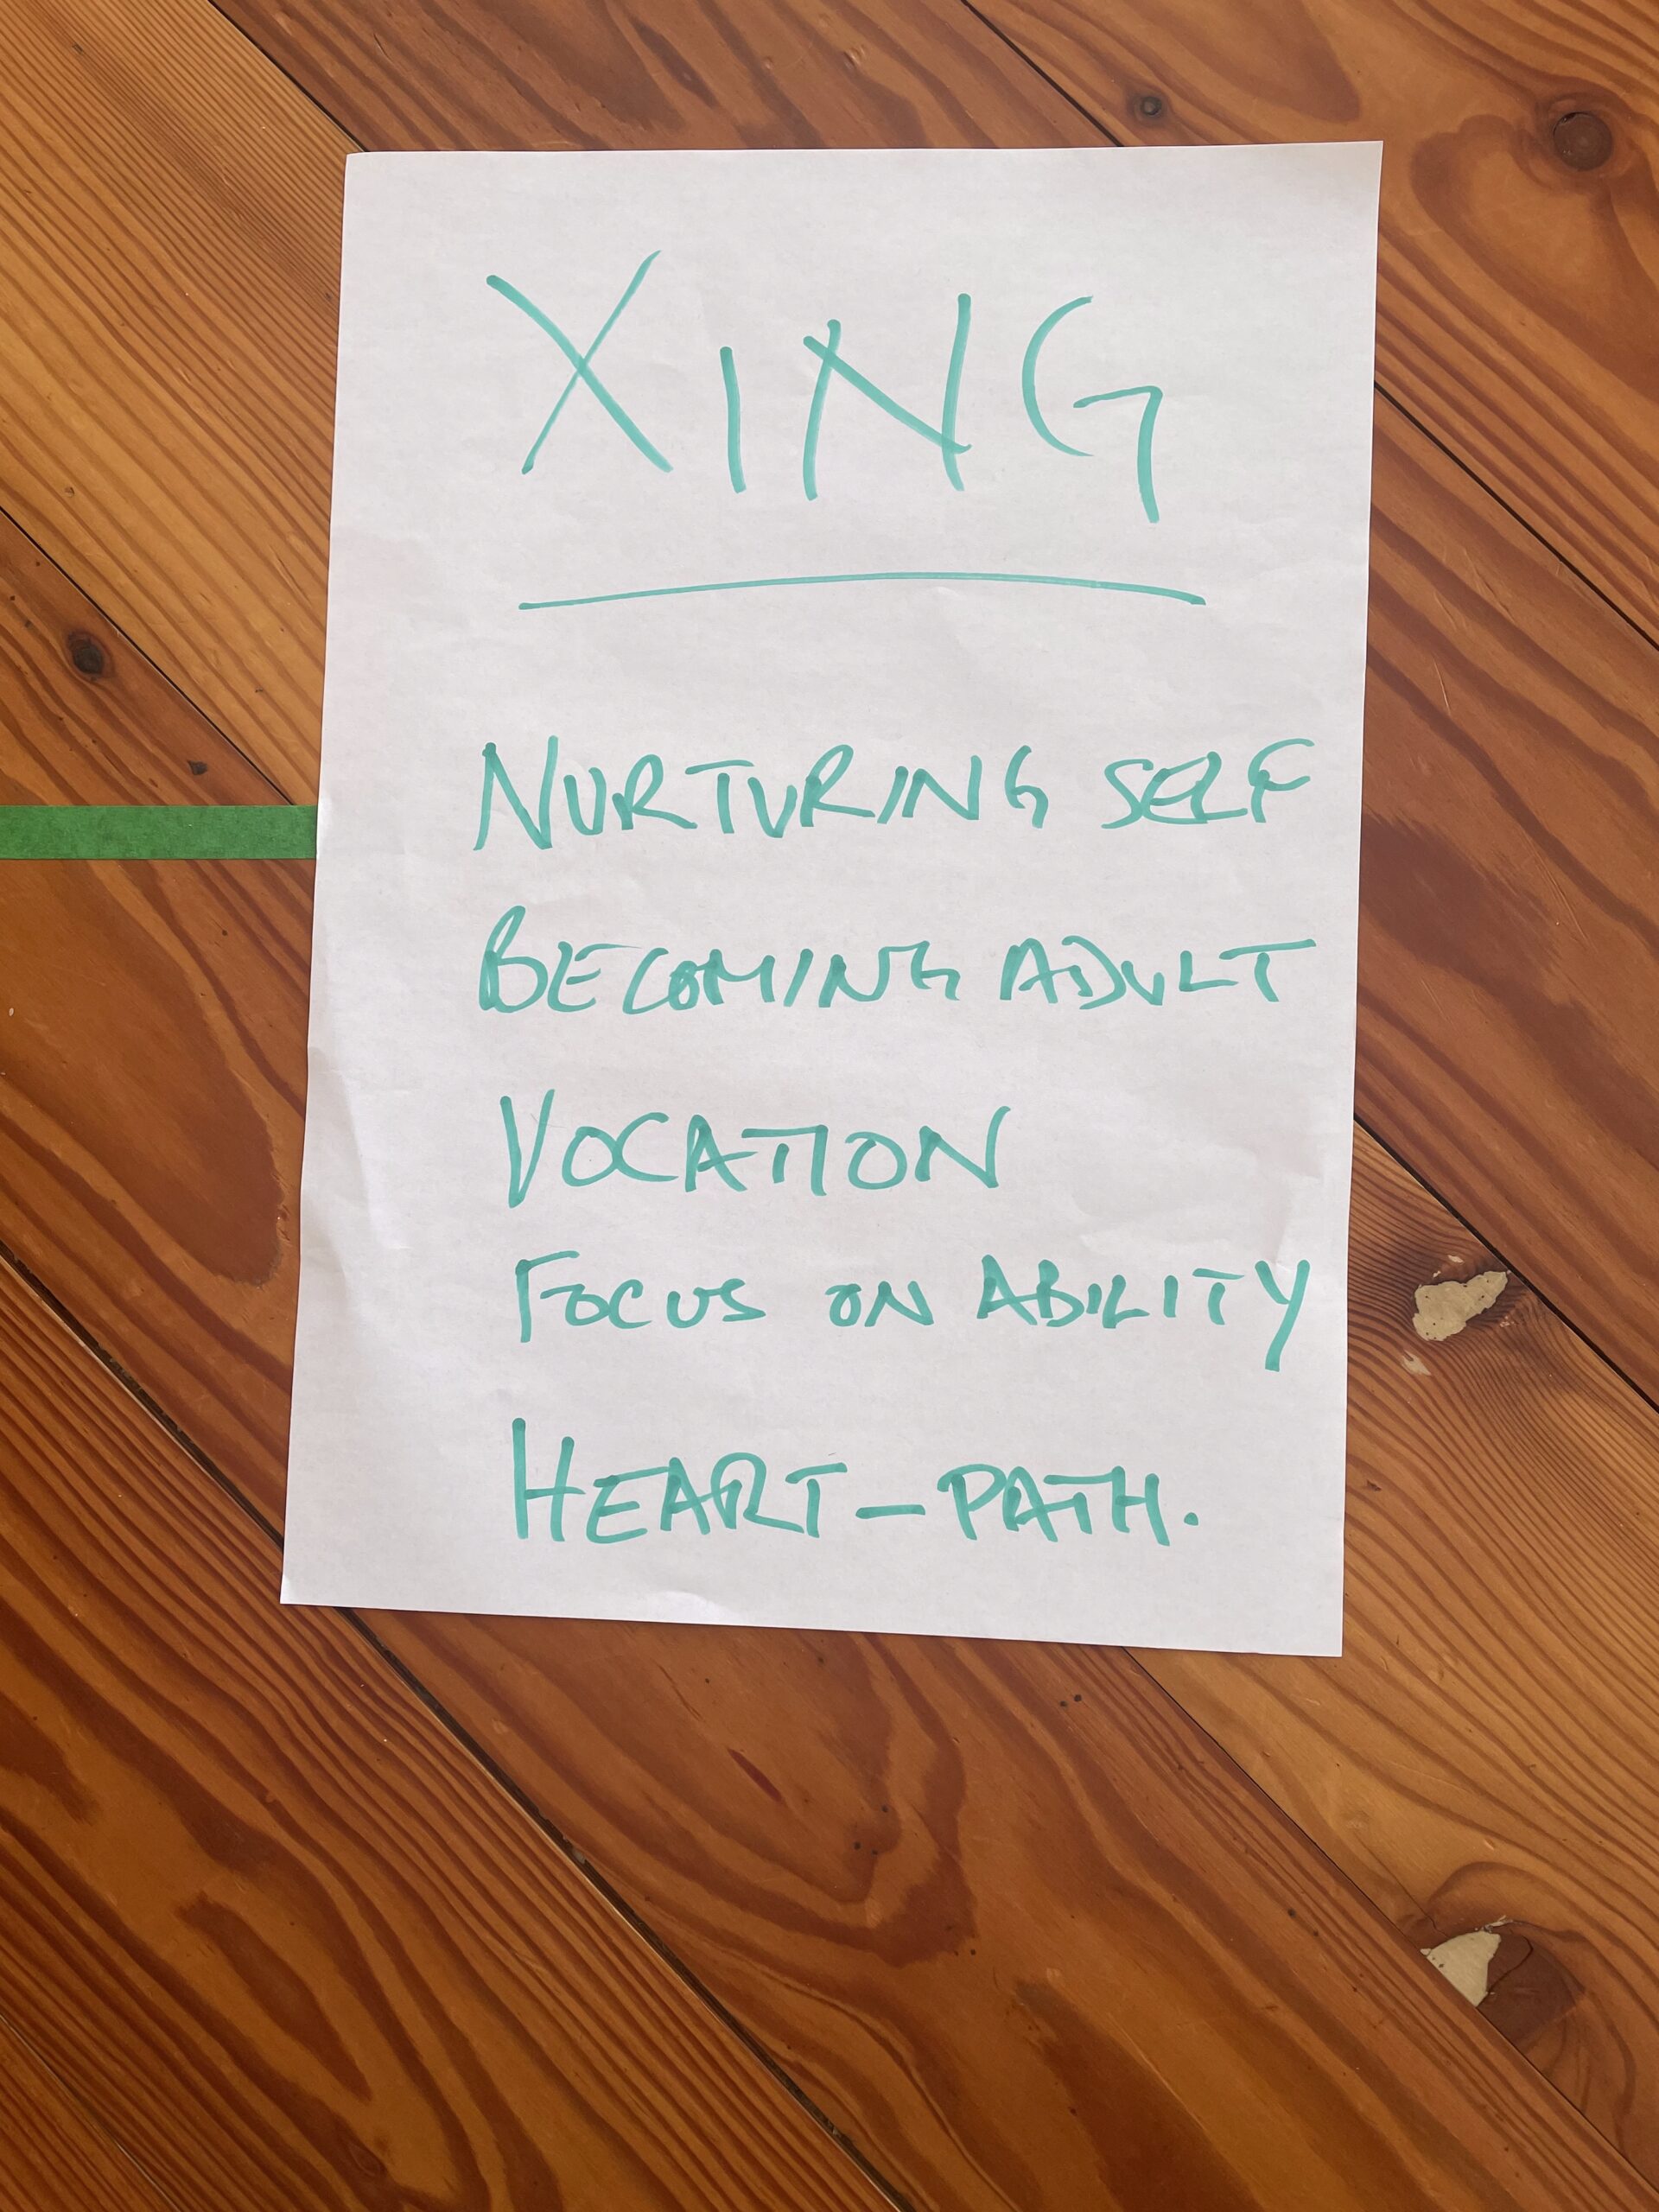 XING
NURTURING SELF
BECOMING ADULT
VOCATION
FOCUS ON ABILITY
HEART-PATH.